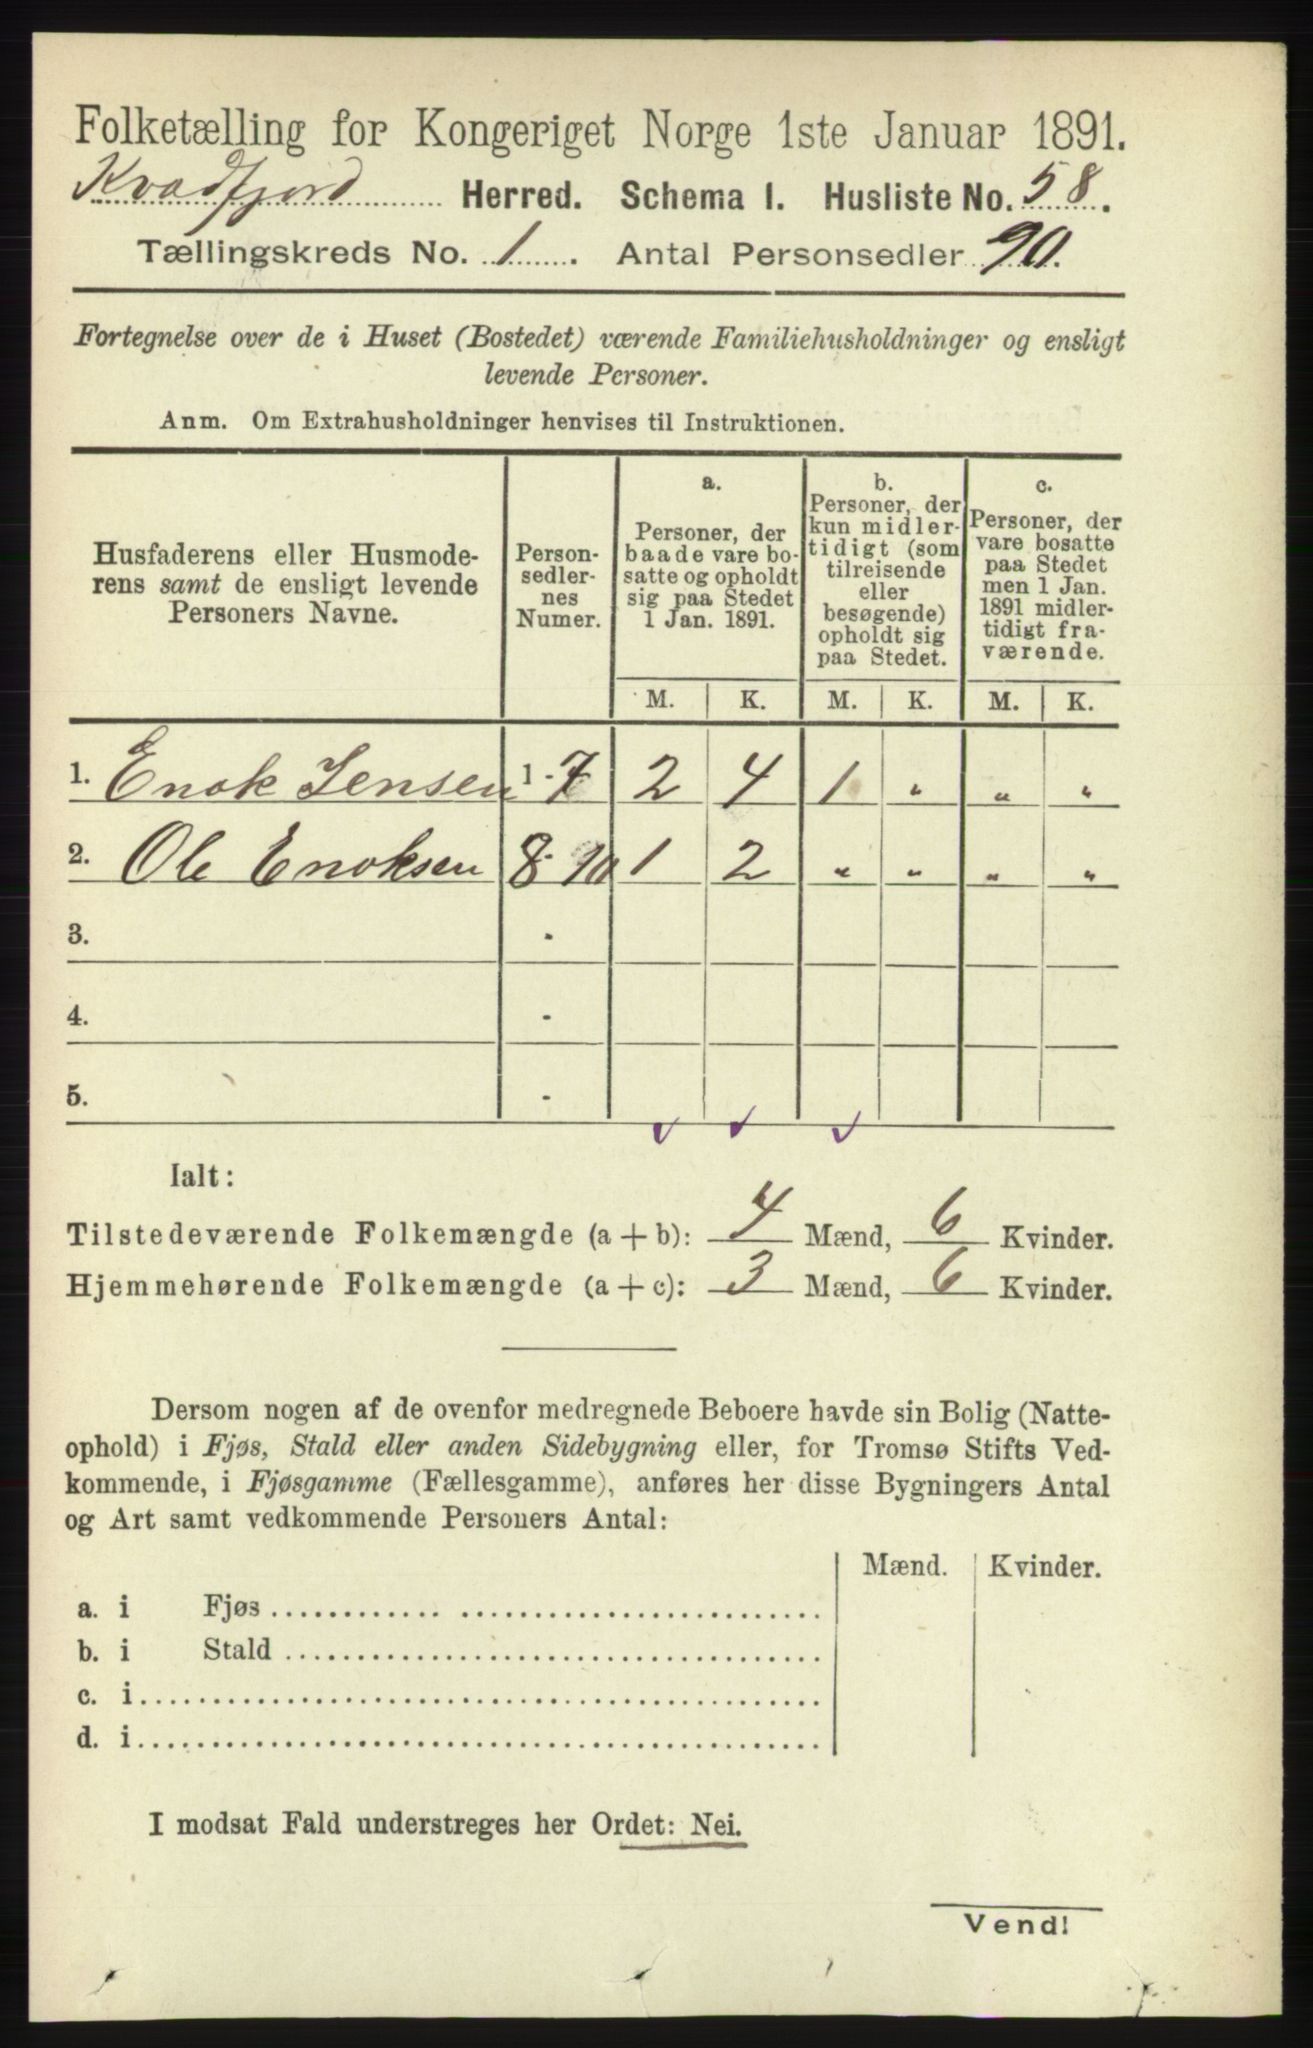 Folketælling for Kongeriget Norge 1ste Januar 1891.
Kvadfjord Herred. Schema I. Husliste No. 58.
Tællingskreds No. 1. Antal Personsedler 10.
Fortegnelse over de i Huset (Bostedet) værende Familiehusholdninger og ensligt
levende Personer.
Anm. Om Extrahusholdninger henvises til Instruktionen.
Husfaderens eller Husmode-
rens samt de ensligt levende
Personers Navne.
Person-
sedler-
nes
Numer.
a.
Personer, der
baade vare bo-
satte og opholdt
sig paa Stedet
1 Jan. 1891.
b.
Personer, der
kun midler-
tidigt (som
tilreisende
eller
besøgende)
opholdt sig
paa Stedet.
c.
Personer, der
vare bosatte
paa Stedet
men 1 Jan.
1891 midler-
tidigt fra-
værende.
M. K. M. K. M. K.
1. Enok Jensen 1-7 2 4 1 „ „ „
2. Ole Enoksen 8-10 1 2 „ „ „ „
3. -
4. -
5. -
Ialt:
Tilstedeværende Folkemængde (a + b): 4 Mænd, 6 Kvinder.
Hjemmehørende Folkemængde (a + c): 3 Mænd, 6 Kvinder.
Dersom nogen af de ovenfor medregnede Beboere havde sin Bolig (Natte-
ophold) i Fjøs, Stald eller anden Sidebygning eller, for Tromsø Stifts Ved-
kommende, i Fjøsgamme (Fællesgamme), anføres her disse Bygningers Antal
og Art samt vedkommende Personers Antal:
Mænd. Kvinder.
a. i Fjøs
b. i Stald
c. i
d. i
I modsat Fald understreges her Ordet: Nei.
Vend!